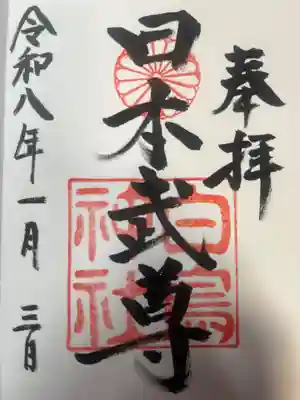 奉拝
日本武尊
白鳥神社
令和八年一月三日